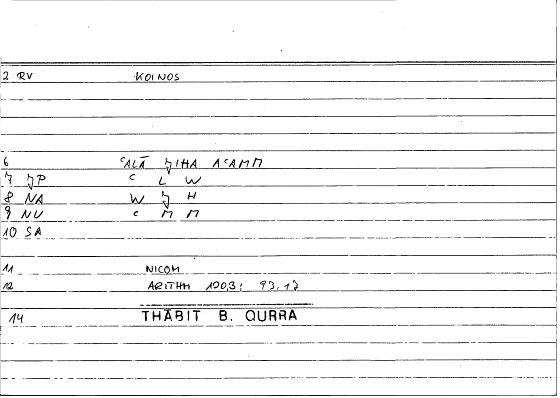 2 RV KOINOS
6 ʿALĀ ǦIHA AʿAMM
7 ǦP C L W
8 NA W Ǧ H
9 NU C M M
10 SA
11 NICOM
12 ARITHM 100,3: 93,17
14 THĀBIT B. QURRA